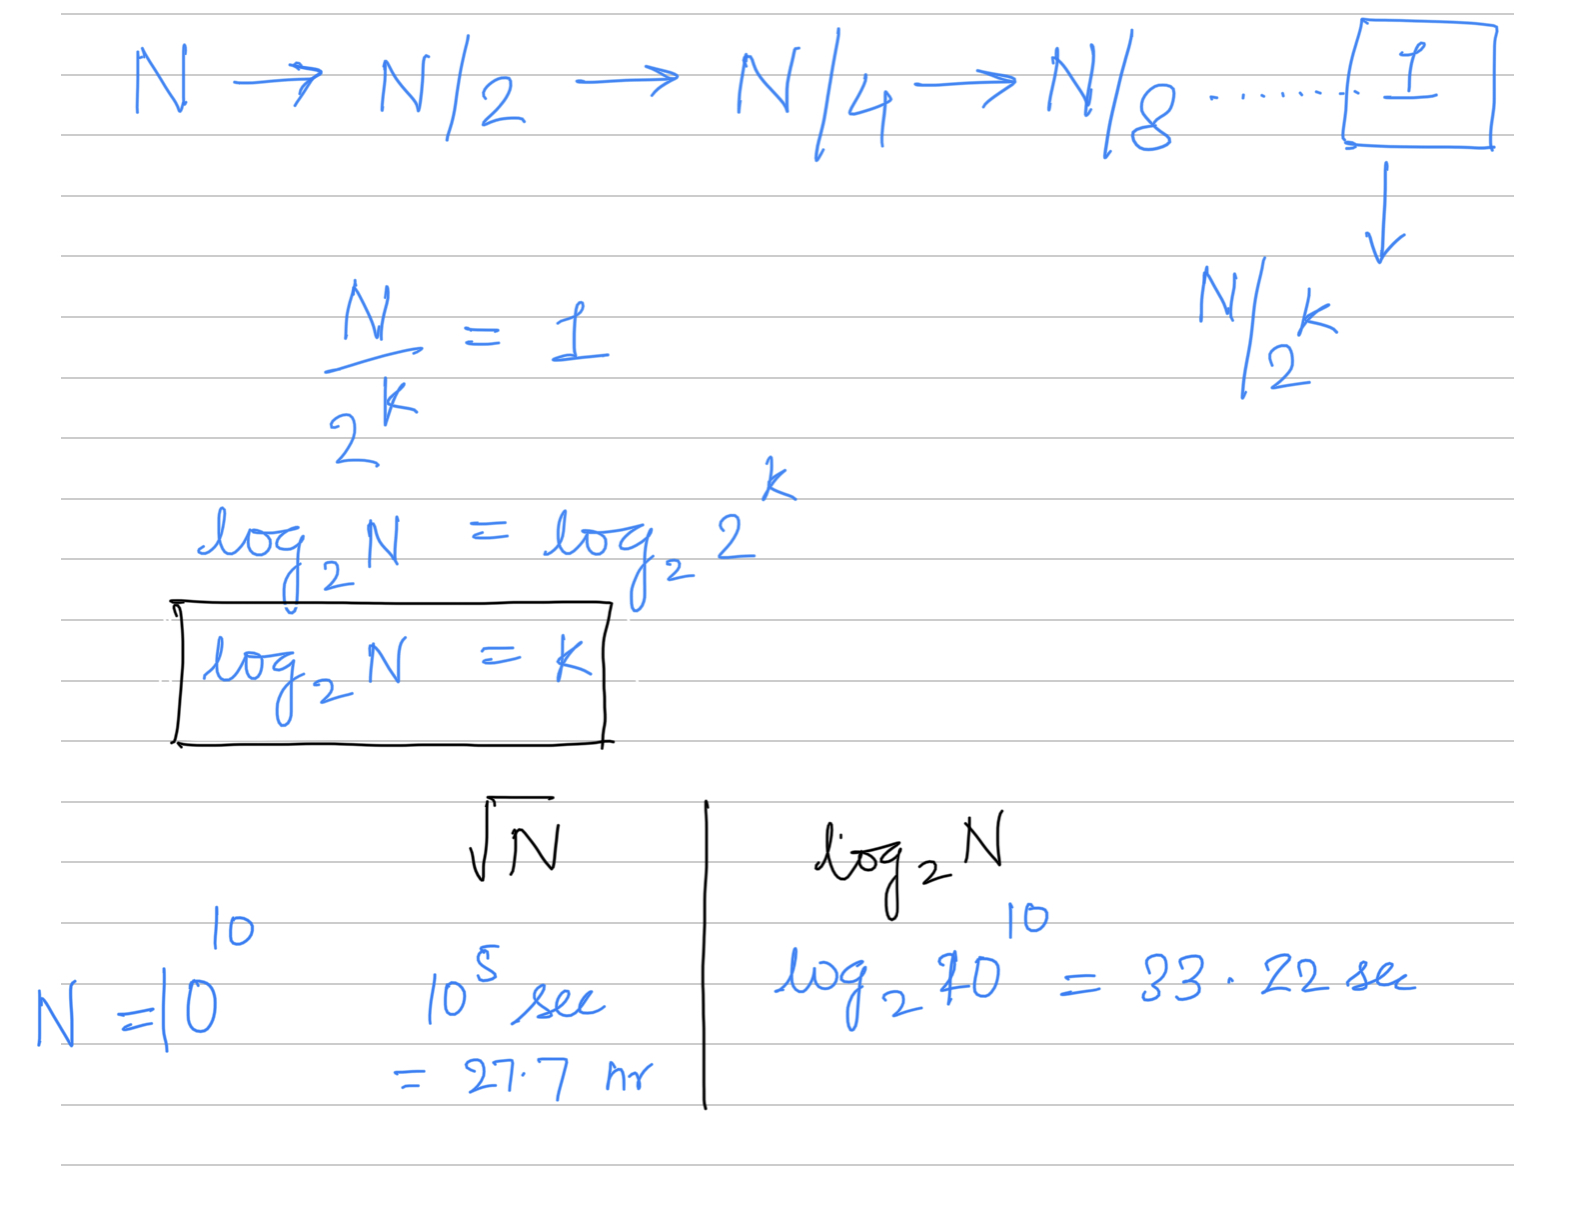 N → N/2 → N/4 → N/8 ........ 1
↓
N/2^k
N/2^k = 1
log₂ N = log₂ 2^k
log₂ N = k
√N | log₂ N
N = 10^10 10^5 sec | log₂ 10^10 = 33.22 sec
= 27.7 hr